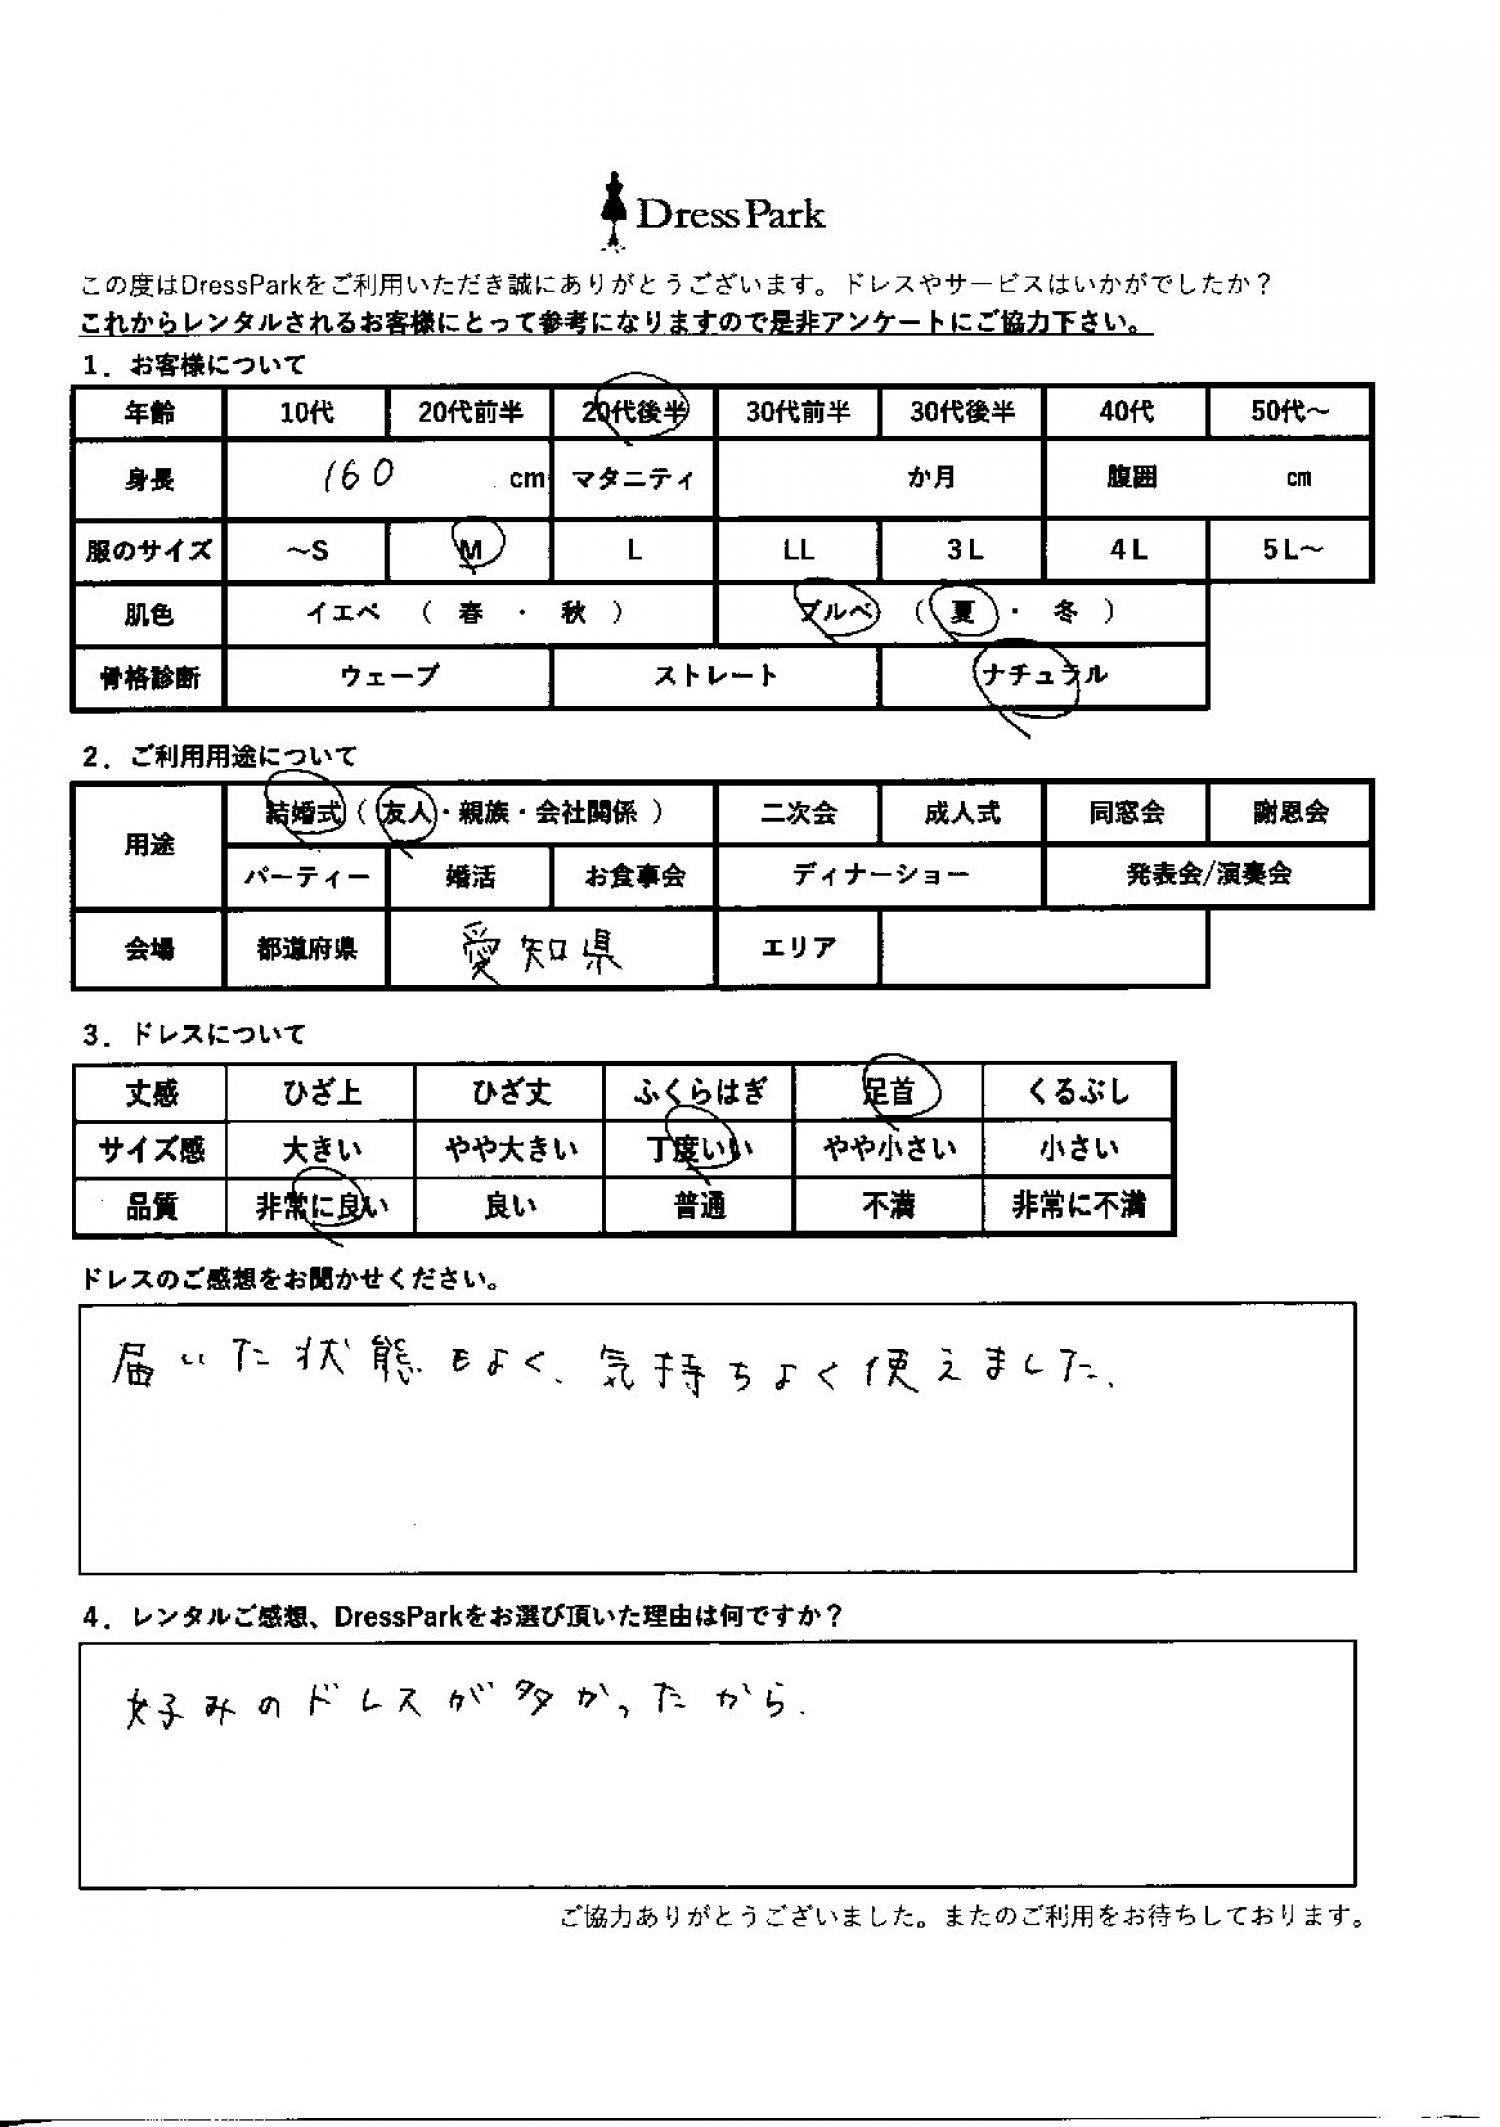 DressPark
この度はDressParkをご利用いただき誠にありがとうございます。ドレスやサービスはいかがでしたか？
これからレンタルされるお客様にとって参考になりますので是非アンケートにご協力下さい。
1．お客様について
年齢 10代 20代前半 20代後半 30代前半 30代後半 40代 50代～
身長 160 cm マタニティ か月 腹囲 cm
服のサイズ ～S M L LL 3L 4L 5L～
肌色 イエベ （ 春 ・ 秋 ） ブルベ （ 夏 ・ 冬 ）
骨格診断 ウェーブ ストレート ナチュラル
2．ご利用用途について
用途 結婚式（ 友人・親族・会社関係 ） 二次会 成人式 同窓会 謝恩会
パーティー 婚活 お食事会 ディナーショー 発表会/演奏会
会場 都道府県 愛知県 エリア
3．ドレスについて
丈感 ひざ上 ひざ丈 ふくらはぎ 足首 くるぶし
サイズ感 大きい やや大きい 丁度いい やや小さい 小さい
品質 非常に良い 良い 普通 不満 非常に不満
ドレスのご感想をお聞かせください。
届いた状態もよく、気持ちよく使えました。
4．レンタルご感想、DressParkをお選び頂いた理由は何ですか？
好みのドレスが多かったから。
ご協力ありがとうございました。またのご利用をお待ちしております。